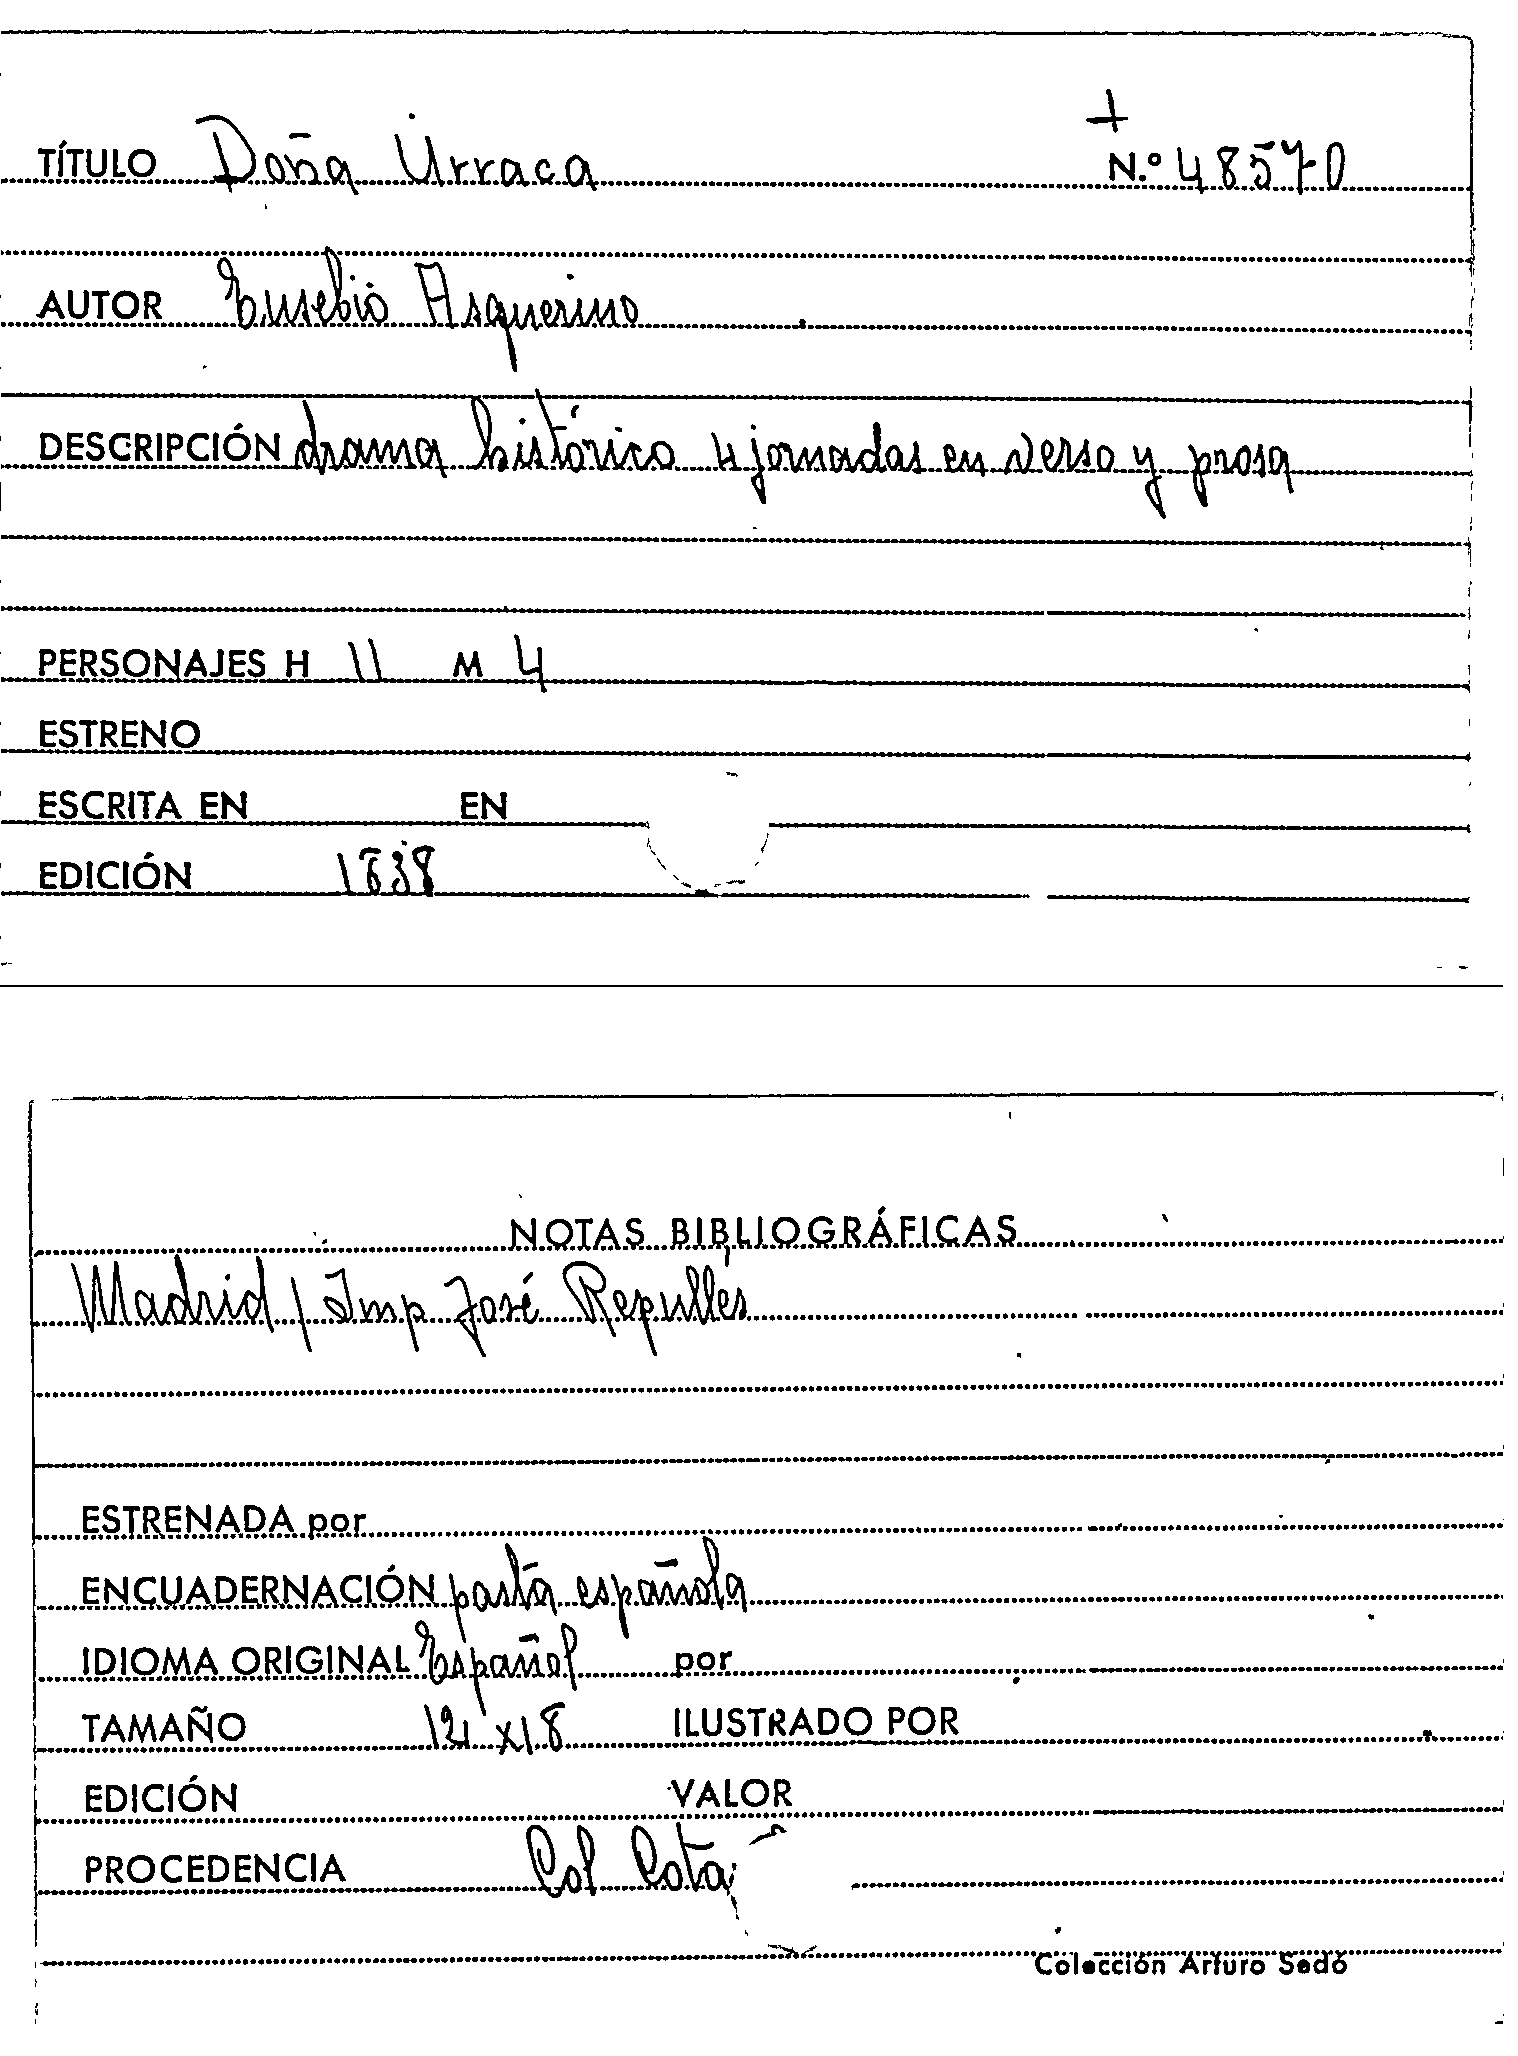 +
TÍTULO Doña Urraca N.º 48570
AUTOR Eusebio Asquerino
DESCRIPCIÓN drama histórico 4 jornadas en verso y prosa
PERSONAJES H 11 M 4
ESTRENO
ESCRITA EN EN
EDICIÓN 1838
NOTAS BIBLIOGRÁFICAS
Madrid / Imp José Repullés
ESTRENADA por
ENCUADERNACIÓN pasta española
IDIOMA ORIGINAL Español por
TAMAÑO 12 x 18 ILUSTRADO POR
EDICIÓN VALOR
PROCEDENCIA Col Cota
Colección Arturo Sedó